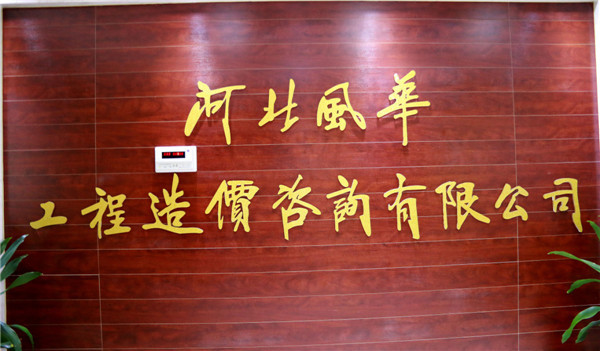 河北風華
工程造價咨詢有限公司